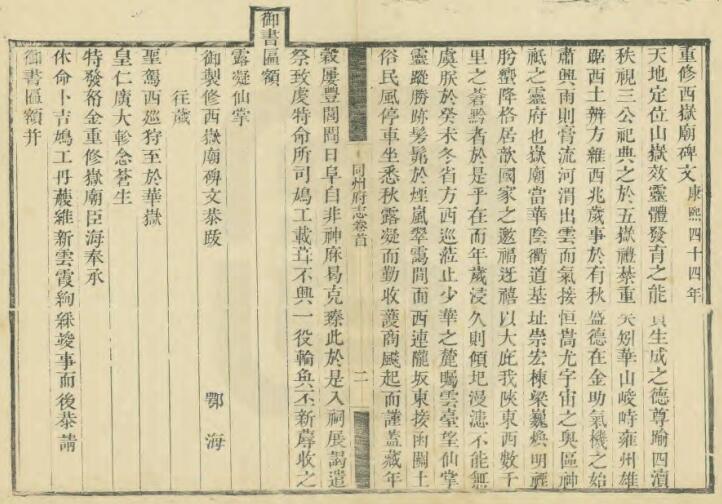 重修西嶽廟碑文 康熙四十四年
天地定位山嶽效靈體發育之能生成之德尊踰四瀆
秩視三公祀典之於五嶽禮綦重矣矧華山峻峙雍州雄
踞西土辨方維西兆歲事於有秋盛德在金助氣機之始
肅興雨則膏流河渭出雲而氣接恒嵩尤宇宙之奧區神
祗之靈府也嶽廟當華陰衝道基址崇宏棟梁巍煥明禋
肹蠁降格居歆國家之邀福迓禧以大庇我陝東西數千
里之蒼黔者於是乎在而年歲浸久則傾圯漫漶不能無
虞朕於癸未冬省方西巡蒞止少華之麓矚雲臺望仙掌
靈蹤勝跡髣髴於煙嵐翠靄間而西連隴坂東接函關土
俗民風停車坐悉秋露凝而勤收穫商飈起而謹蓋藏年
同州府志卷首 二
穀屢豐閭閻日阜自非神庥易克臻此於是入祠展謁遣
祭致虔特命所司鳩工載葺不興一役輪奐丕新蓐收之
御書匾額
露凝仙掌
御製修西嶽廟碑文恭跋 鄂海
往歲
聖駕西巡狩至於華嶽
皇仁廣大軫念蒼生
特發帑金重修嶽廟臣海奉承
休命卜吉鳩工丹雘維新雲霞絢綵竣事而後恭請
御書匾額并